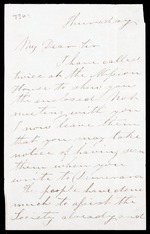 Thursday
My Dear Sir
I have called
twice at the Mission
House to show you
the enclosed. Not
meeting with you
I now leave them
that you may take
notice of having seen
them when you
write to Demerara
The people have done
much to assist the
Society already and